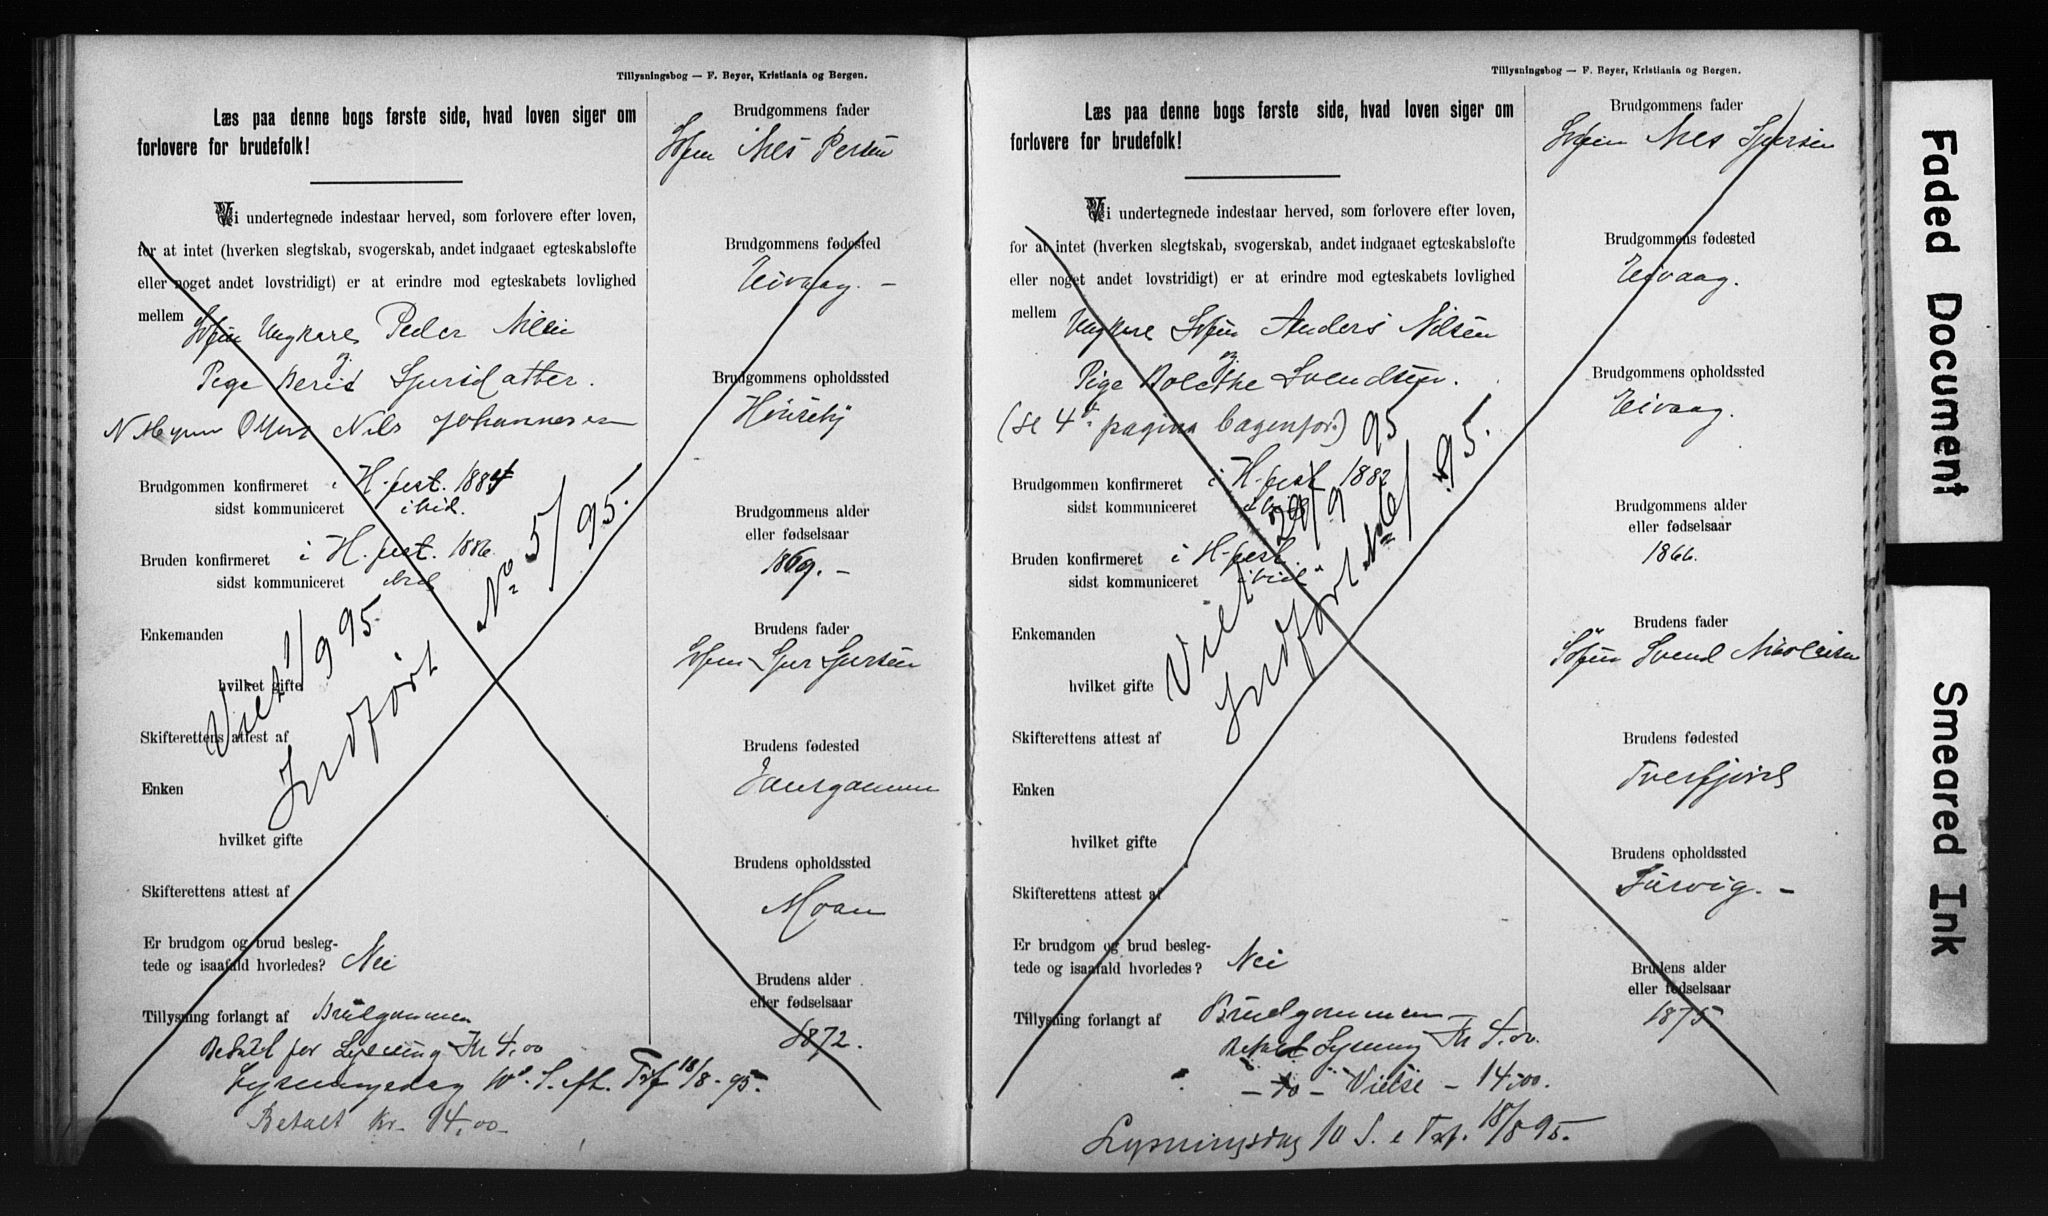 Tillysningsbog — F. Beyer, Kristiania og Bergen.
Læs paa denne bogs første side, hvad loven siger om
forlovere for brudefolk!
Vi undertegnede indestaar herved, som forlovere efter loven,
for at intet (hverken slegtskab, svogerskab, andet indgaaet egteskabsløfte
eller noget andet lovstridigt) er at erindre mod egteskabets lovlighed
mellem
Ungkarl Peder Nilsen
og
Pige Berit Sjursdatter.
Nils Johannesen
Brudgommen konfirmeret i H.fest. 1884
sidst kommuniceret ibid.
Bruden konfirmeret i H.fest. 1886.
sidst kommuniceret ibid
Enkemanden
hvilket gifte
Skifterettens attest af
Enken
hvilket gifte
Skifterettens attest af
Viet 1/9 95.
Indført No 5/95.
Er brudgom og brud besleg-
tede og isaafald hvorledes? Nei
Tillysning forlangt af Brudgommen
Betalt for Lysning Kr 4,00
Lysningsdag 10de S. e. Tref 18/8 - 95.
Betalt Kr. 14,00
Brudgommens fader
Nils Persen
Brudgommens fødested
Eivaag. –
Brudgommens opholdssted
Brudgommens alder
eller fødselsaar
1869. –
Brudens fader
Sjur Sjursen
Brudens fødested
Brudens opholdssted
Moan
Brudens alder
eller fødselsaar
1872.
Tillysningsbog — F. Beyer, Kristiania og Bergen.
Læs paa denne bogs første side, hvad loven siger om
forlovere for brudefolk!
Vi undertegnede indestaar herved, som forlovere efter loven,
for at intet (hverken slegtskab, svogerskab, andet indgaaet egteskabsløfte
eller noget andet lovstridigt) er at erindre mod egteskabets lovlighed
mellem
Ungkarl Anders Nilsen
og
Pige Bolethe Svendsen.
(se 4de pagina bagenfor.)
Brudgommen konfirmeret i H.fest 1882
sidst kommuniceret ibid
Bruden konfirmeret i H.fest.
sidst kommuniceret ibid
Enkemanden
hvilket gifte
Skifterettens attest af
Enken
hvilket gifte
Skifterettens attest af
Viet 29/9 95
Indført No 6/95.
Er brudgom og brud besleg-
tede og isaafald hvorledes? Nei
Tillysning forlangt af Brudgommen
Betalt Lysning Kr 4,00.
" – do – Vielse – 14,00.
Lysningsdag 10 S. e Tref. 18/8 95.
Brudgommens fader
Nils Sjursen
Brudgommens fødested
Eivaag.
Brudgommens opholdssted
Eivaag.
Brudgommens alder
eller fødselsaar
1866.
Brudens fader
Svend Nicolaisen
Brudens fødested
Tverfjord
Brudens opholdssted
Brudens alder
eller fødselsaar
1875.
Faded Document
Smeared Ink